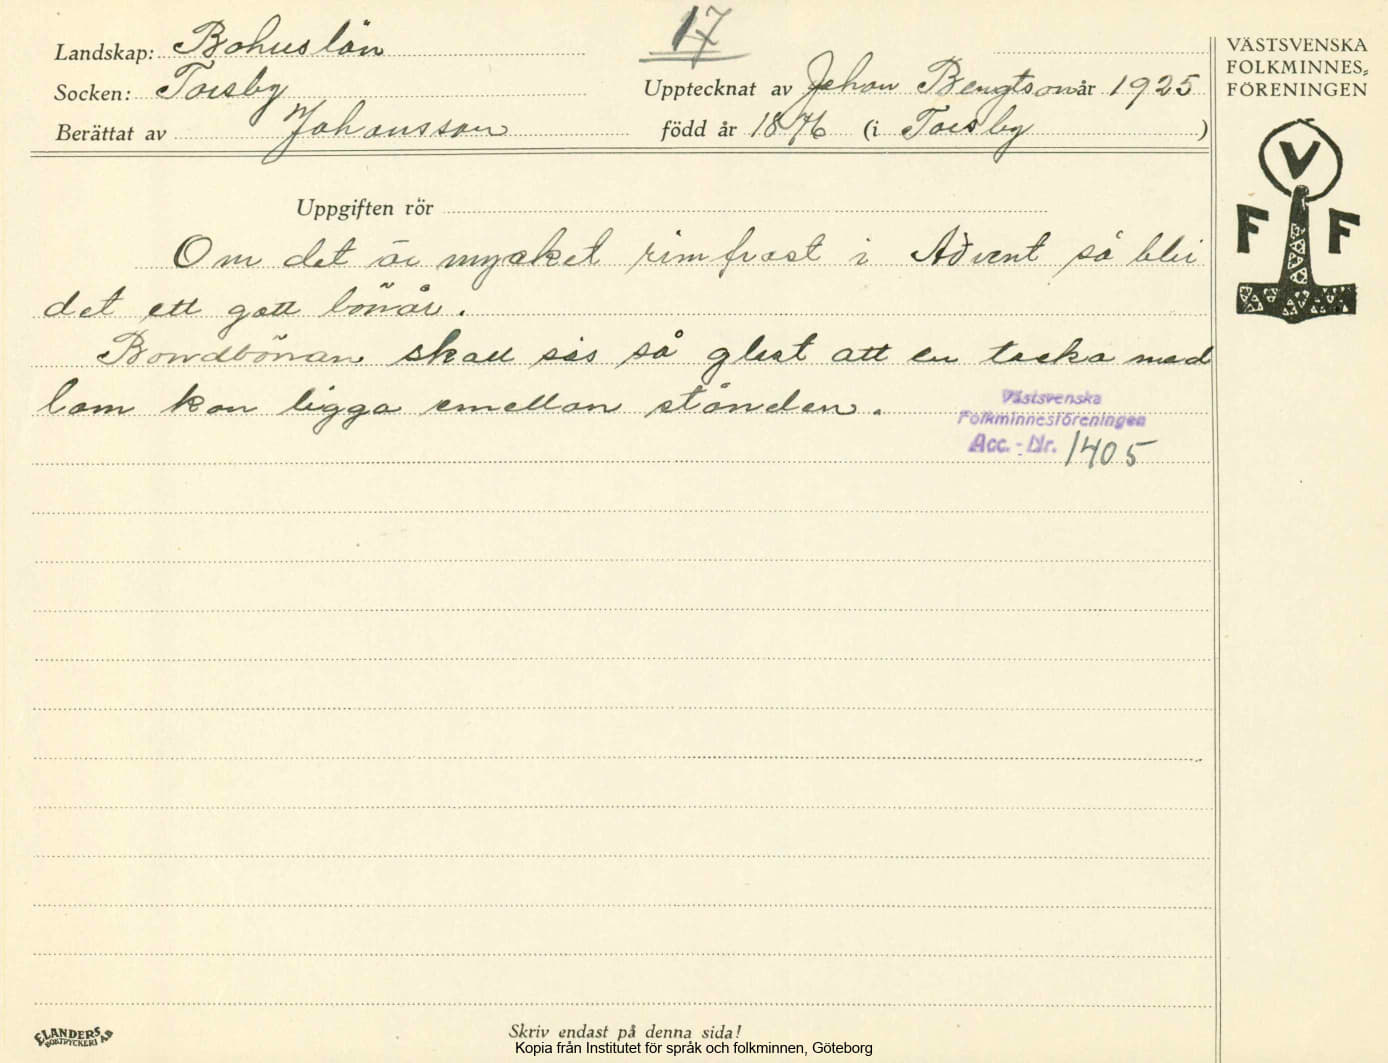 17
Landskap: Bohuslän
Socken: Torsby
Berättat av Johansson
Upptecknat av Johan Bengtson år 1925
född år 1876 (i Torsby)
VÄSTSVENSKA
FOLKMINNES-
FÖRENINGEN
V
F F
Uppgiften rör
Om det är mycket rimfrost i Advent så blir
det ett gott bönår.
Bondbönan skall sås så glest att en tacka med
lam kan ligga emellan stånden.
Västsvenska
Folkminnesföreningen
Acc.-Nr. 1405
ELANDERS
BOKTRYCKERI AB
Skriv endast på denna sida!
Kopia från Institutet för språk och folkminnen, Göteborg